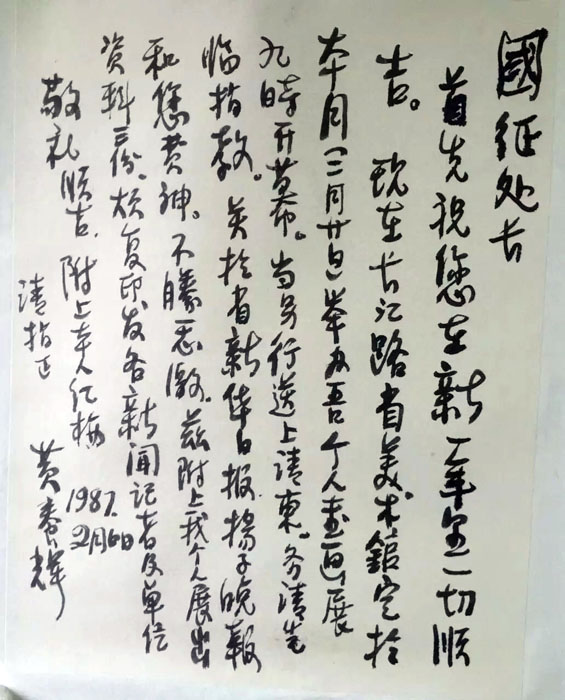 國征处长
首先祝您在新一年里一切顺
吉。现在长江路省美术館定于
本月(二月廿日)举办吾个人画展
九時开幕。当另行送上请柬。务请先
临指教。关于省新华日报揚子晚報
和您费神。不勝感激。兹附上我个人展出
资料二份。烦复印发各新闻记者及单位
敬礼 順吉. 附上本人红梅
请指正
黄養辉
1987.
2月6日